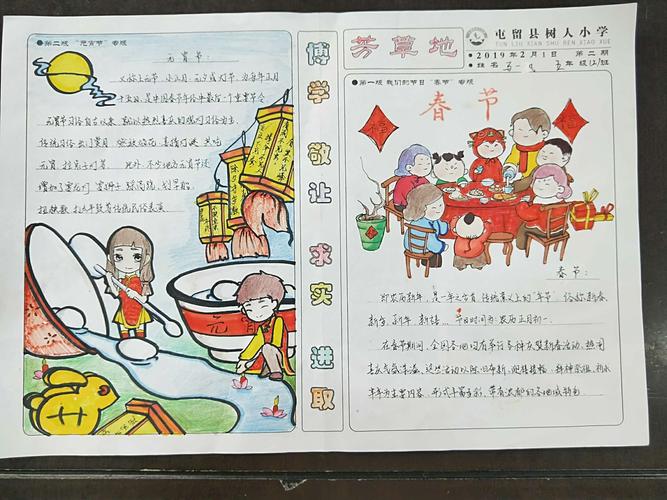 ●第二版 "元宵节" 专版
元宵节:
又称上元节、小正月、元夕或灯节，为每年正月
十五日，是中国春节年俗中最后一个重要节令
元宵节习俗自古以来就以热烈喜庆的观灯习俗为主.
传统习俗出门赏月 燃放焰花 喜猜灯谜 共吃
元宵、拉兔子灯等. 此外、不少地方元宵节还
增加了耍龙灯 耍狮子 踩高跷、划旱船、
扭秧歌、打太平鼓等传统民俗表演
元宵
博学 敬让 求实 进取
芳草地
屯留县树人小学
TUN LIU XIAN SHU REN XIAO XUE
●2019年2月1日 第二期
●姓名 五年级(2)班
●第一版 我们的节日 "春节" 专版
春节
福
福
春节:
即农历新年，是一年之岁首 传统意义上的"年节" 俗称新春、
新岁、新年、新禧 节日时间为:农历正月初一.
在春节期间，全国各地均有举行各种庆贺新春活动、热闹
喜庆气氛洋溢、这些活动以除旧布新、迎禧接福、拜神祭祖、祈求
丰年为主要内容、形式丰富多彩、带有浓郁的各地域特色